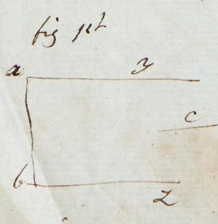 fig 1st
a y
c
b z